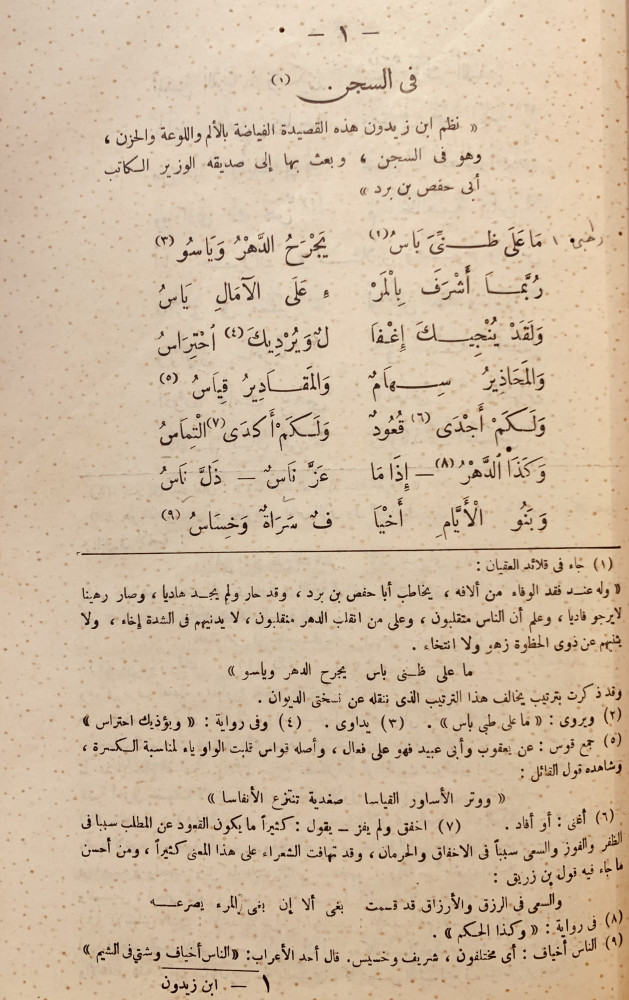 — ١ —
فى السجن (١)
« نظم ابن زيدون هذه القصيدة الفياضة بالألم واللوعة والحزن ،
وهو فى السجن ، وبعث بها إلى صديقه الوزير الكاتب
أبى حفص بن برد »
مَا عَلَى ظَنِّىَ بَاسُ (٢) يَجْرَحُ الدَّهْرُ وَيَاسُو (٣)
رُبَّمَا أَشْرَفَ بِالْمَرْ ءِ عَلَى الْآمَالِ يَاسُ
وَلَقَدْ يُنْجِيكَ إِغْفَا لٌ وَيُرْدِيكَ (٤) احْتِرَاسُ
وَالْمَحَاذِيرُ سِهَامٌ وَالْمَقَادِيرُ قِيَاسُ (٥)
وَلَكَمْ أَجْدَى (٦) قُعُودٌ وَلَكَمْ أَكْدَى (٧) الْتِمَاسُ
وَكَذَا الدَّهْرُ (٨) — إِذَا مَا عَزَّ نَاسٌ — ذَلَّ نَاسُ
وَبَنُو الْأَيَّامِ أَخْيَا فٌ سَرَاةٌ وَخِسَاسُ (٩)
(١) جاء فى قلائد العقيان :
« وله عند فقد الوفاء من ألافه ، يخاطب أبا حفص بن برد ، وقد حار ولم يجد هاديا ، وصار رهينا
لايرجو فاديا ، وعلم أن الناس متقلبون ، وعلى من انقلب الدهر منقلبون ، لا يدنيهم فى الشدة إخاء ، ولا
يثنيهم عن ذوى الحظوة زهو ولا انتخاء .
ما على ظنى باس يجرح الدهر وياسو »
وقد ذكرت بترتيب يخالف هذا الترتيب الذى ننقله عن نسختى الديوان .
(٢) ويروى : « ما على طبى باس » . (٣) يداوى . (٤) وفى رواية : « ويؤذيك احتراس »
(٥) جمع قوس : عن يعقوب وأبى عبيد فهو على فعال ، وأصله قواس قلبت الواو ياء لمناسبة الكسرة ،
وشاهده قول القائل :
« ووتر الأساور القياسا صغدية تنتزع الأنفاسا »
(٦) أغنى : أو أفاد . (٧) اخفق ولم يفز — يقول : كثيراً ما يكون القعود عن المطلب سببا فى
الظفر والفوز والسعى سبباً فى الاخفاق والحرمان ، وقد تهافت الشعراء على هذا المعنى كثيراً ، ومن أحسن
ما جاء فيه قول بن زريق :
والسعى فى الرزق والأرزاق قد قسمت بغى ألا إن بغى المرء يصرعه
(٨) فى رواية : « وكذا الحكم » .
(٩) الناس أخياف : أى مختلفون ، شريف وخسيس . قال أحد الأعراب : «الناس أخياف وشتى فى الشيم »
١ — ابن زيدون